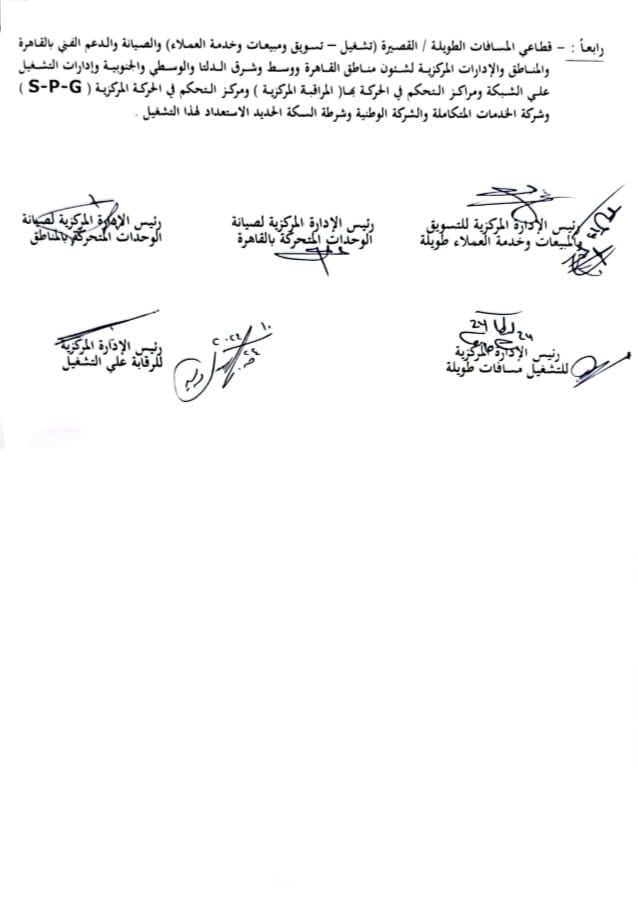 رابعاً : – قطاعي المسافات الطويلة / القصيرة (تشغيل – تسويق ومبيعات وخدمة العملاء) والصيانة والدعم الفني بالقاهرة
والمناطق والإدارات المركزية لشئون مناطق القاهرة ووسط وشرق الدلتا والوسطي والجنوبية وإدارات التشغيل
علي الشبكة ومراكز التحكم في الحركة بها( المراقبة المركزية ) ومركز التحكم في الحركة المركزية ( S-P-G )
وشركة الخدمات المتكاملة والشركة الوطنية وشرطة السكة الحديد الاستعداد لهذا التشغيل .
رئيس الإدارة المركزية للتسويق
والمبيعات وخدمة العملاء طويلة
رئيس الإدارة المركزية لصيانة
الوحدات المتحركة بالقاهرة
رئيس الإدارة المركزية لصيانة
الوحدات المتحركة بالمناطق
رئيس الإدارة المركزية
للتشغيل مسافات طويلة
رئيس الإدارة المركزية
للرقابة علي التشغيل